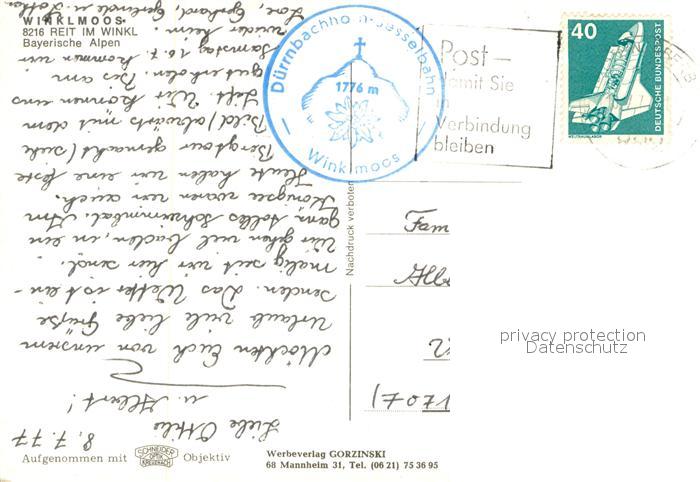 WINKLMOOS
8216 REIT IM WINKL
Bayerische Alpen
Dürrnbachhorn-Sesselbahn
1776 m
Winklmoos
Post –
damit Sie
in
Verbindung
bleiben
40
DEUTSCHE BUNDESPOST
WELTRAUMLABOR
Nachdruck verboten
8.7.77
Liebe Ottilie
u. Albert!
Möchten Euch von unserem
Urlaub viele liebe Grüße
senden. Das Wetter ist ein-
malig seit wir hier sind.
Wir gehen viel baden, in ein
ganz tolles Schwimmbad. Am
Königsee waren wir auch.
Heute haben wir eine feste
Bergtour gemacht (siehe
Bild) abwärts mit dem
Lift. Wir können uns
gut erholen. Bis am
Samstag 16.7. kommen wir
wieder heim.
Gerhard, Gerlinde u.
Fam
Alb
(707)
privacy protection
Datenschutz
Aufgenommen mit SCHNEIDER OPTIK KREUZNACH Objektiv
Werbeverlag GORZINSKI
68 Mannheim 31, Tel. (06 21) 75 36 95